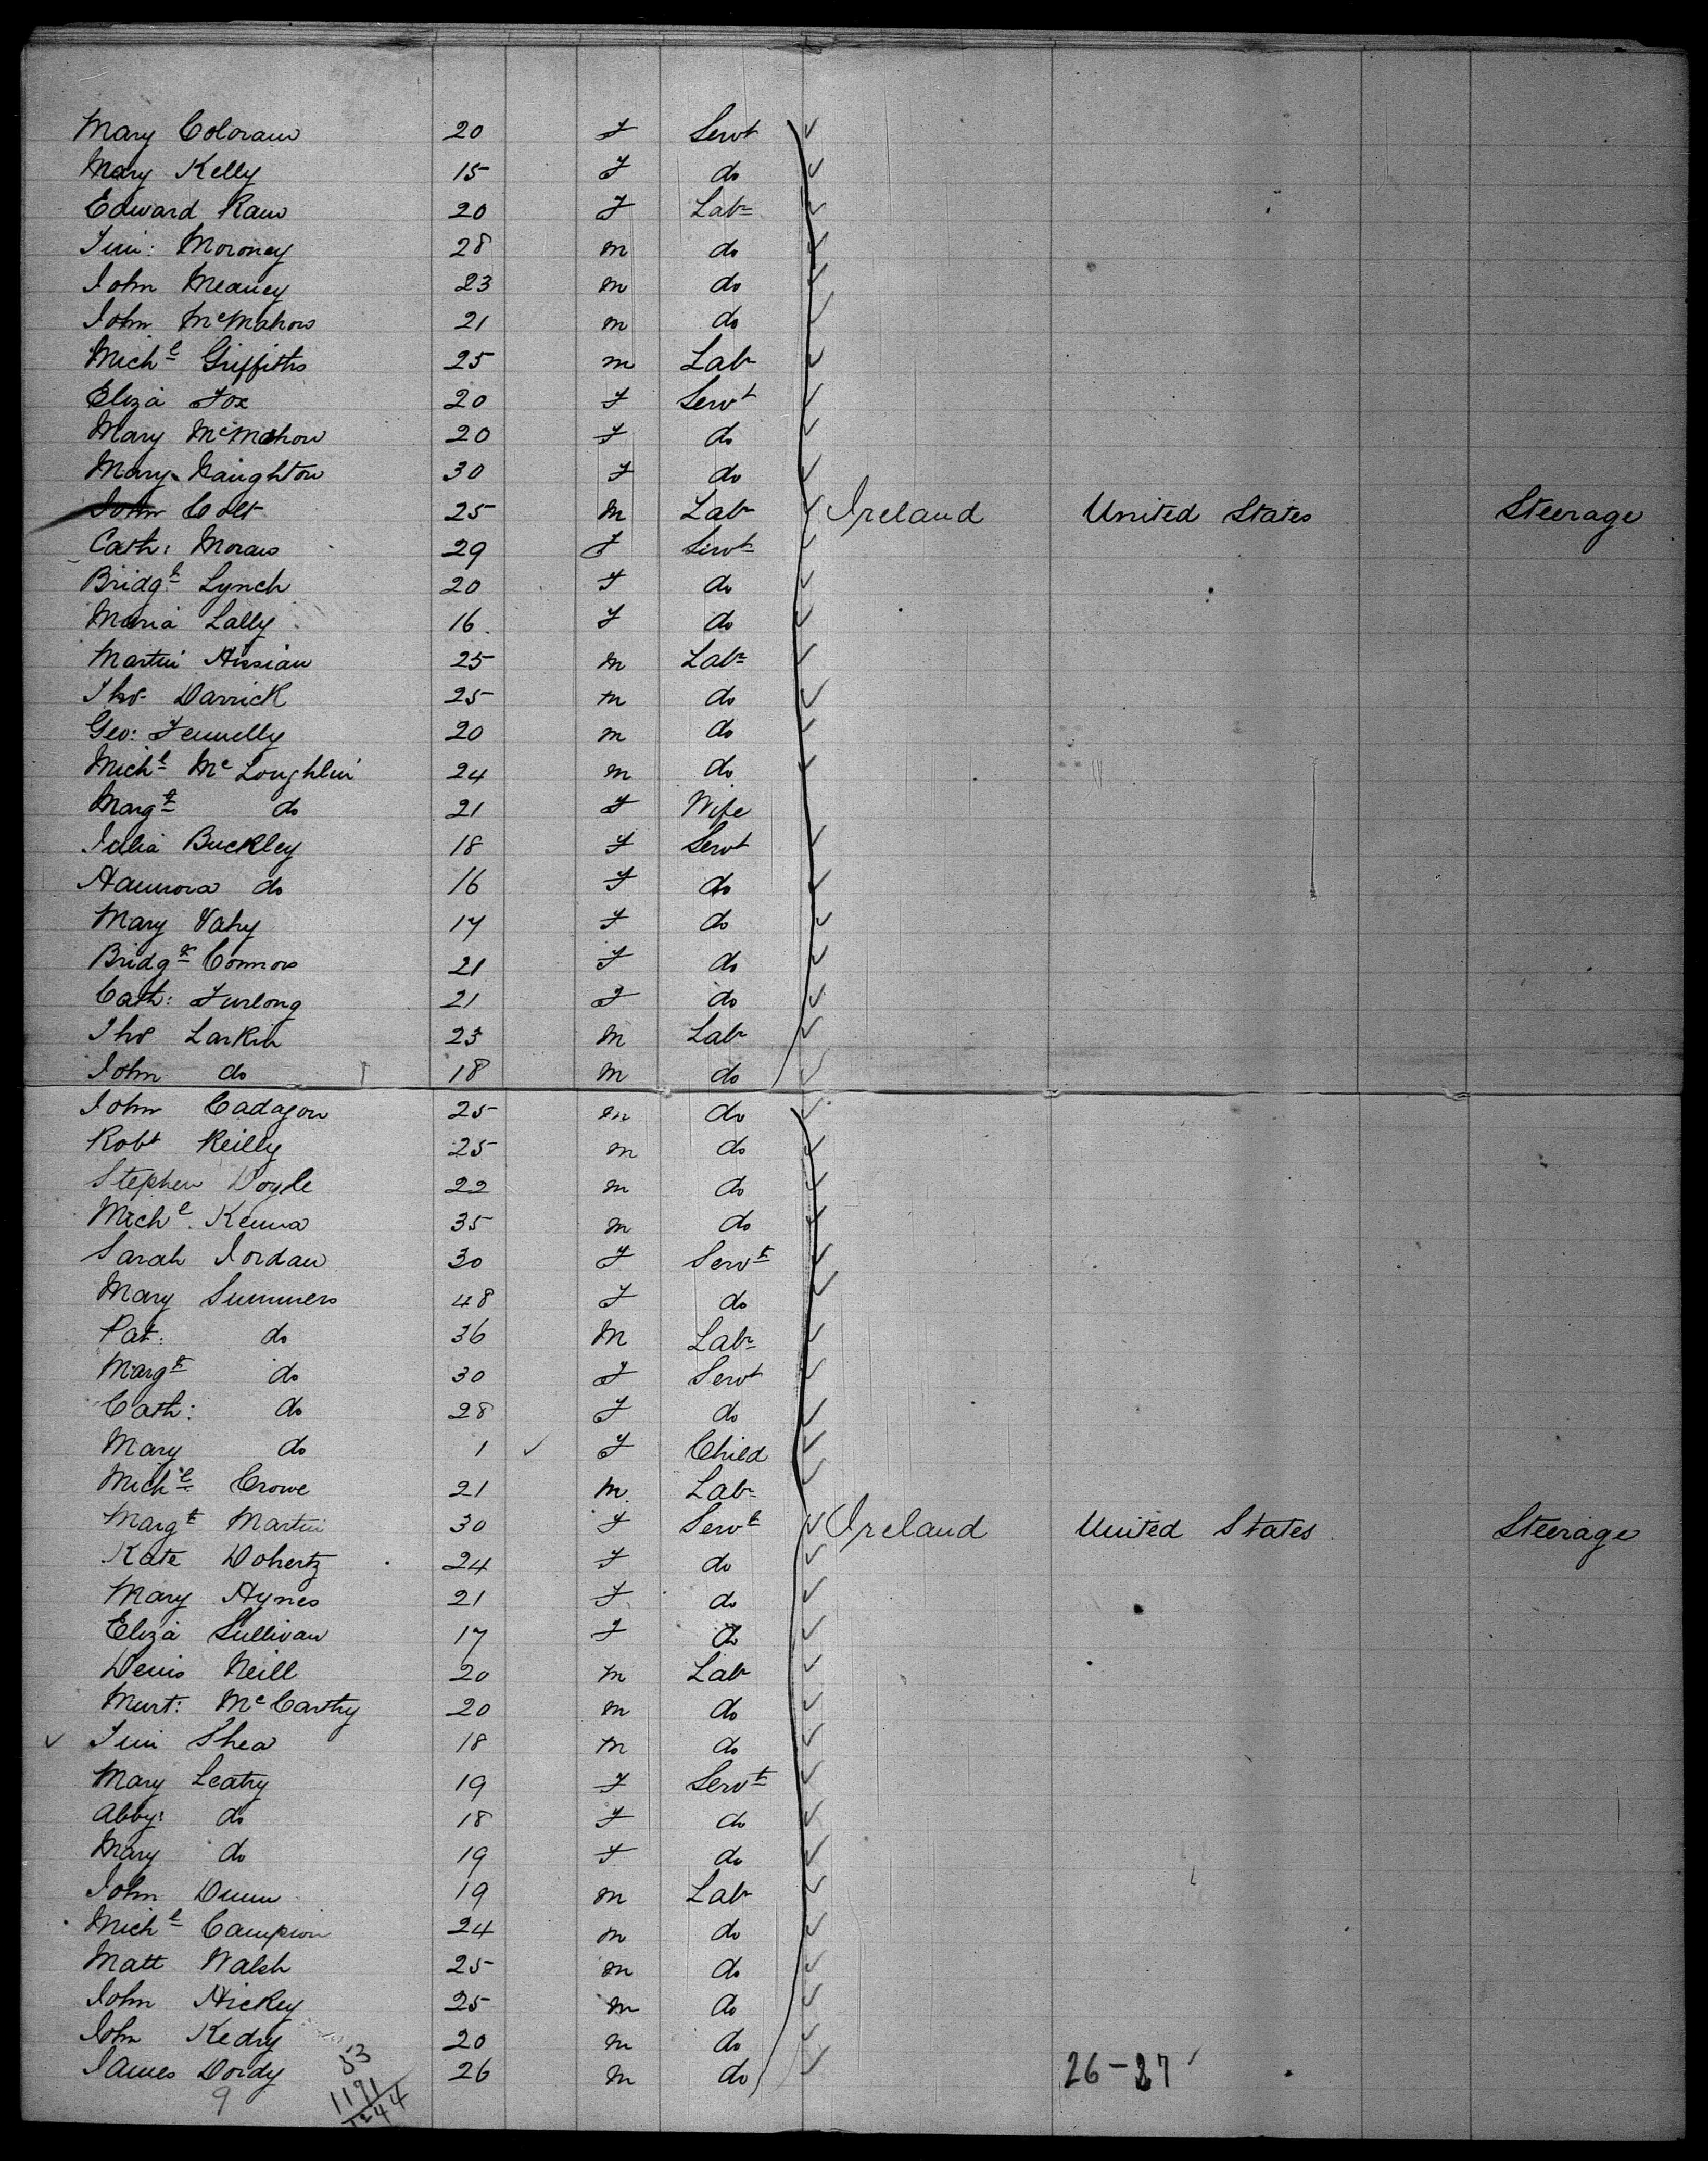 Mary Coloraw 20 F Servt
Mary Kelly 15 F do
Edward Raw 20 F Labr
Tim: Moroney 28 m do
John Meaney 23 m do
John McMahon 21 m do
Michl Griffiths 25 m Labr
Eliza Fox 20 F Servt
Mary McMahon 20 F do
Mary Naughton 30 F do
John Colt 25 m Labr Ireland United States Steerage
Cath: Moran 29 F Servt
Bridgt Lynch 20 F do
Maria Lally 16 F do
Martin Hissian 25 m Labr
Thos Darrick 25 m do
Geo: Fennelly 20 m do
Michl McLoughlin 24 m do
Margt do 21 F Wife
Julia Buckley 18 F Servt
Hannora do 16 F do
Mary Vahy 17 F do
Bridgt Connors 21 F do
Cath: Furlong 21 F do
Thos Larkin 23 m Labr
John do 18 m do
John Cadagon 25 m do
Robt Reilly 25 m do
Stephen Doyle 22 m do
Michl Kenna 35 m do
Sarah Jordan 30 F Servt
Mary Summers 48 F do
Pat: do 36 M Labr
Margt do 30 F Servt
Cath: do 28 F do
Mary do 1 ✓ F Child
Michl Crowe 21 m Labr
Margt Martin 30 F Servt Ireland United States Steerage
Kate Doherty 24 F do
Mary Hynes 21 F do
Eliza Sullivan 17 F do
Denis Neill 20 m Labr
Murt: McCarthy 20 m do
✓ Tim Shea 18 m do
Mary Leahy 19 F Servt
Abby: do 18 F do
Mary do 19 F do
John Dunn 19 m Labr
Michl Campion 24 m do
Matt Walsh 25 m do
John Hickey 25 m do
John Kedry 20 m do
James Dordy 26 m do
53
1191
1244
9
26-27